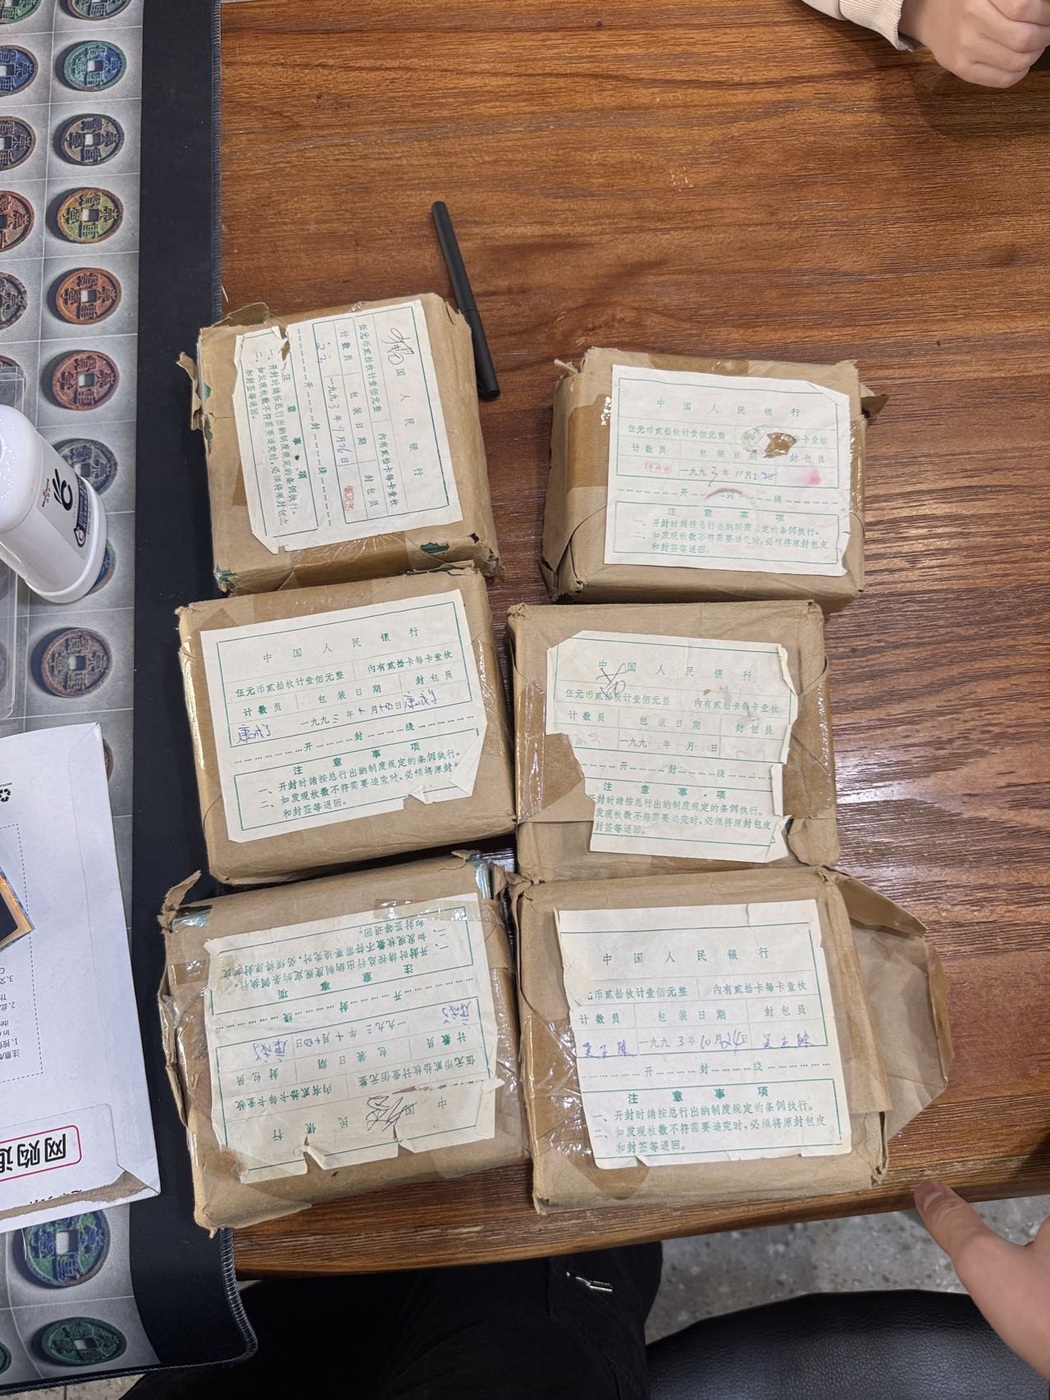 中国人民银行
伍元币贰拾枚计壹佰元整 内有贰拾卡每卡壹枚
计数员 包装日期 封包员
一九九3年9月26日
开封线
注意事项
一、开封时请按总行出纳制度规定的条例执行。
二、如发现枚数不符需要追完时,必须将原封包皮
和封签等退回。
中国人民银行
伍元币贰拾枚计壹佰元整 每卡壹枚
计数员 包装日期 封包员
一九九3年11月
开封线
注意事项
一、开封时请按总行出纳制度规定的条例执行。
二、如发现枚数不符需要追完时,必须将原封包皮
和封签等退回。
中国人民银行
伍元币贰拾枚计壹佰元整 内有贰拾卡每卡壹枚
计数员 包装日期 封包员
一九九三年 月 日
开封线
注意事项
一、开封时请按总行出纳制度规定的条例执行。
二、如发现枚数不符需要追完时,必须将原封
和封签等退回。
中国人民银行
伍元币贰拾枚计壹佰元整 内有贰拾卡每卡壹枚
计数员 包装日期 封包员
一九九 年 月 日
开封线
注意事项
开封时请按总行出纳制度规定的条例执行。
如发现枚数不符需要追完时,必须将原封包皮
封签等退回。
中 民银行
伍元币贰拾枚计壹佰元整 内有贰拾卡每卡壹枚
计数员 包装日期 封包员
一九九三年十月十四日
开封线
注意事项
一、开封时请按总行出纳制度规定的条例执行
二、如发现枚数不符需要追完时,必须将原封包皮
和封签等退回。
中国人民银行
元币贰拾枚计壹佰元整 内有贰拾卡每卡壹枚
计数员 包装日期 封包员
一九九3年10月14日
开封线
注意事项
一、开封时请按总行出纳制度规定的条例执行。
二、如发现枚数不符需要追完时,必须将原封包皮
和封签等退回。
网购